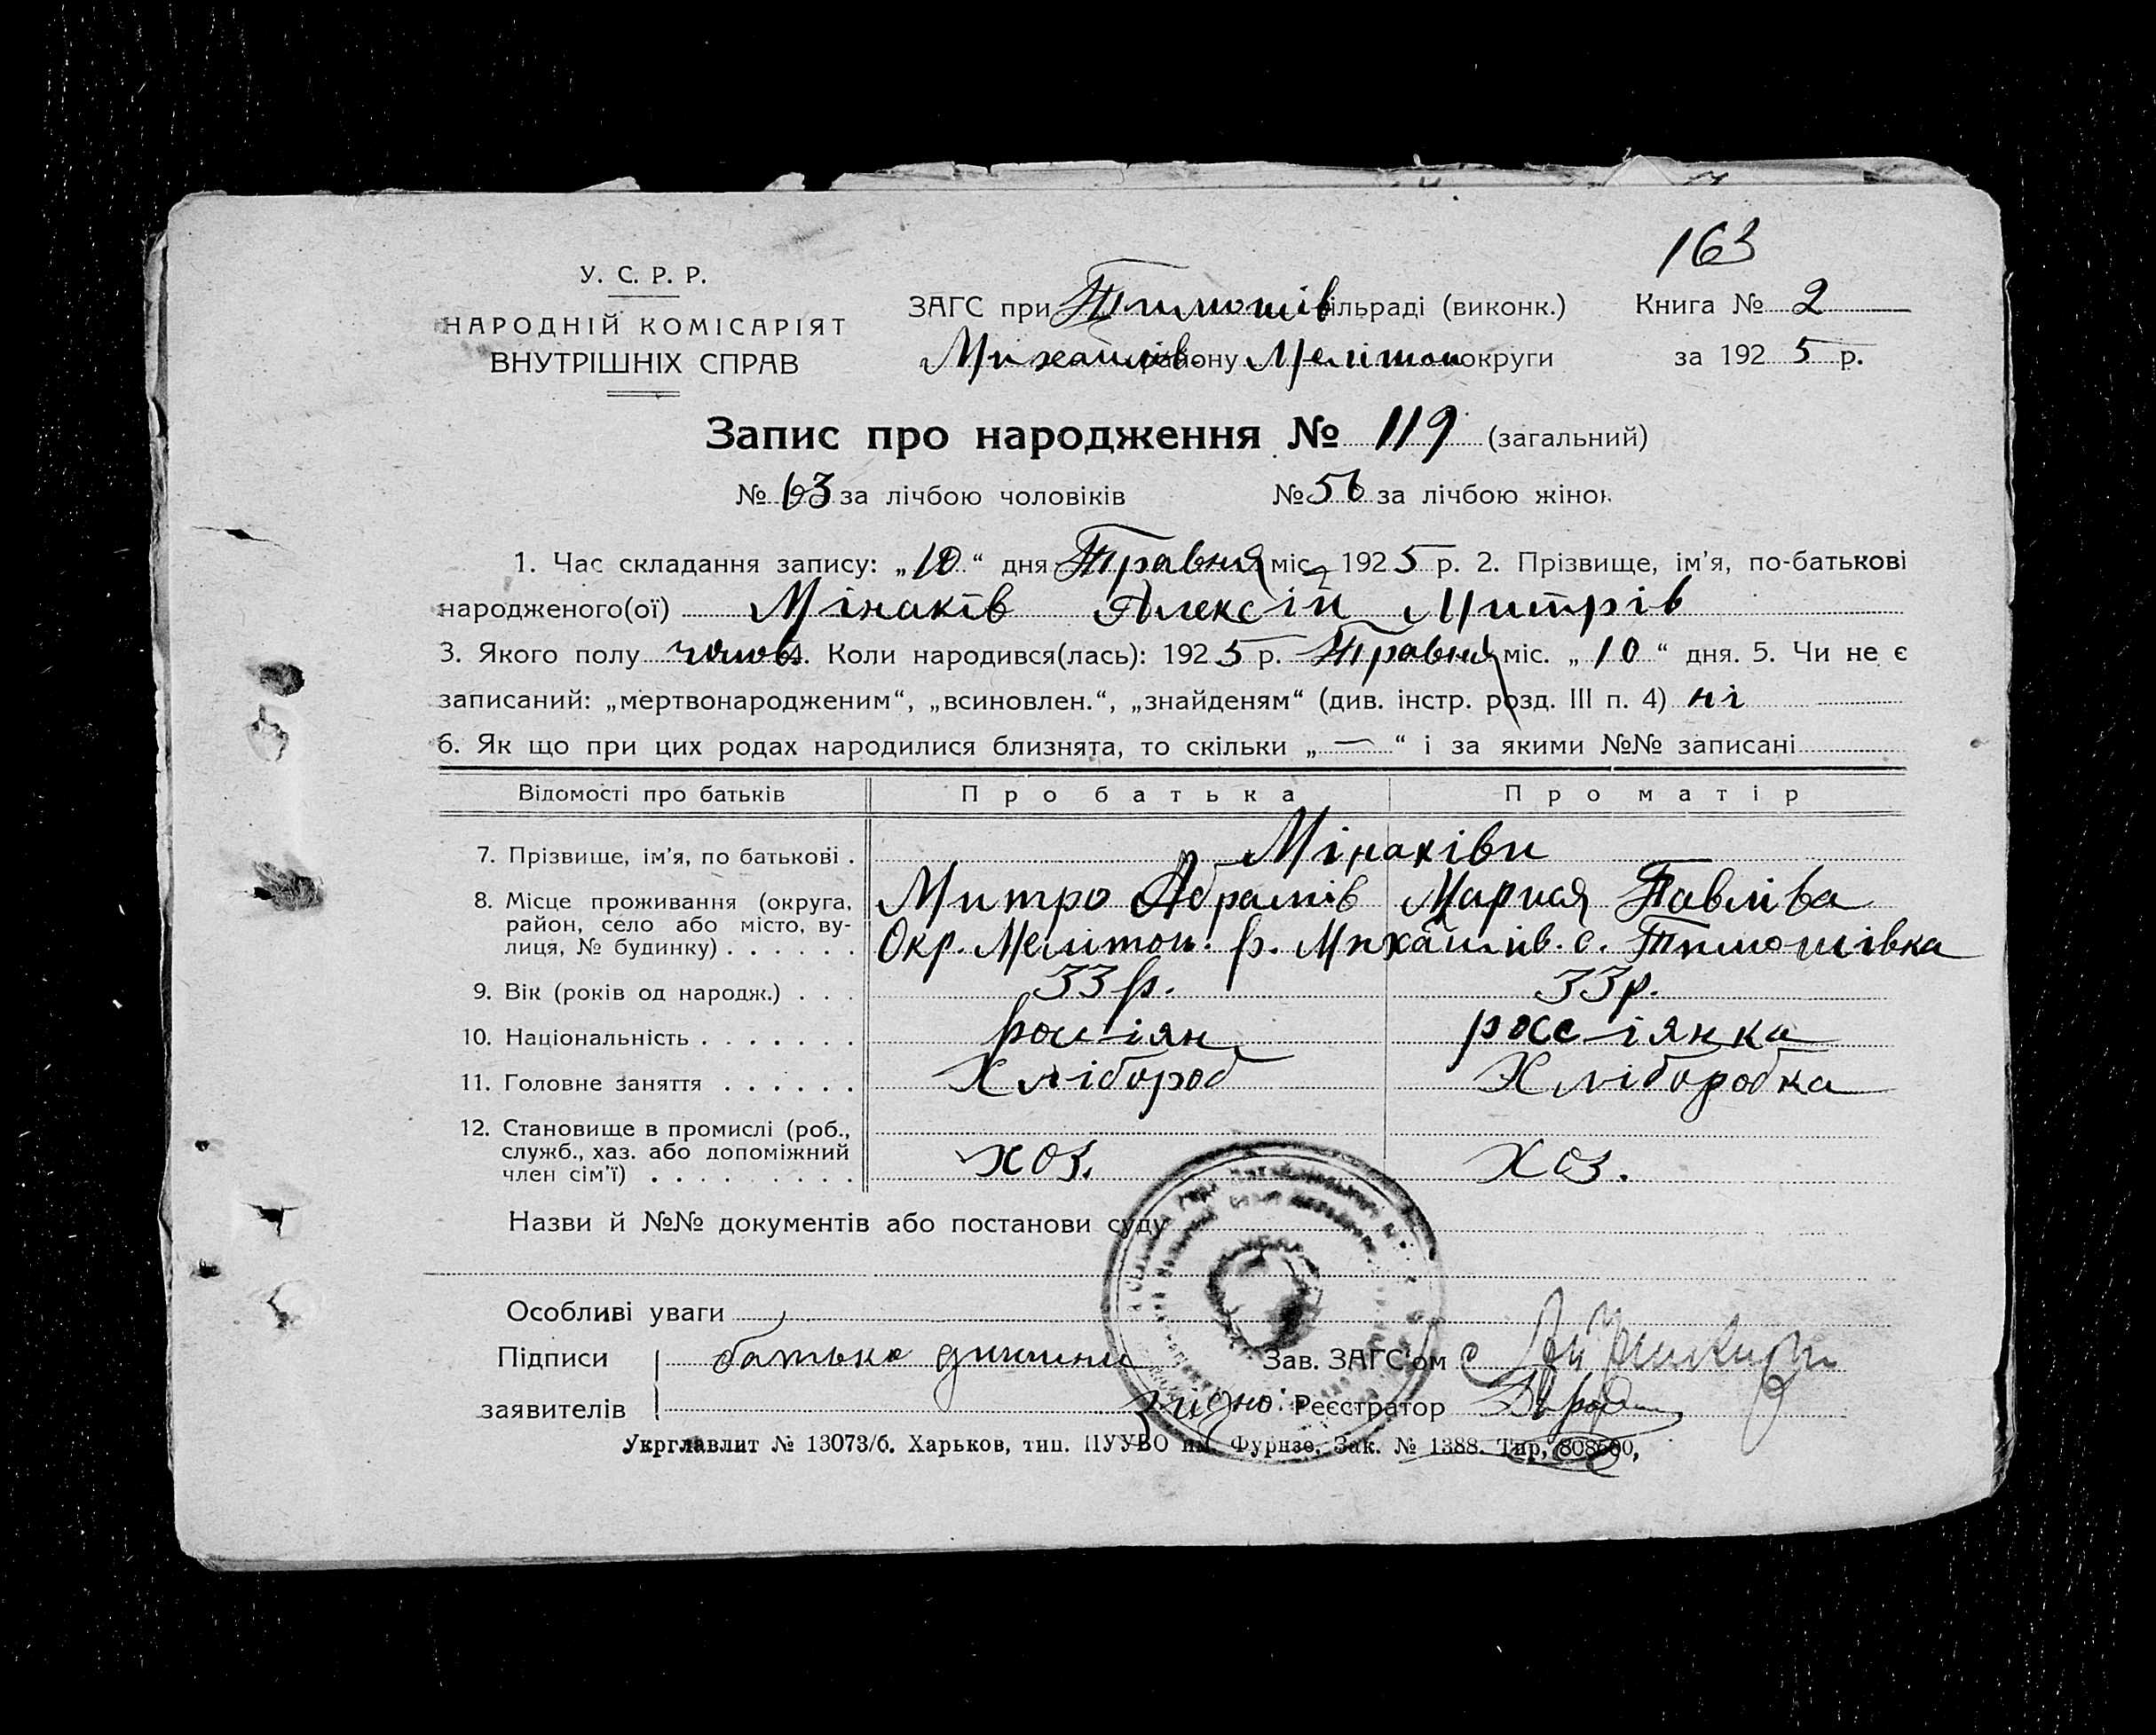 163
У. С. Р. Р.
НАРОДНІЙ КОМІСАРІЯТ
ВНУТРІШНІХ СПРАВ
ЗАГС при Тимошів сільраді (виконк.)
Михайлів. району Мелітоп округи
Книга № 2
за 1925 р.
Запис про народження № 119 (загальний)
№ 63 за лічбою чоловіків № 56 за лічбою жінок
1. Час складання запису: „10“ дня Травня міс. 1925 р. 2. Прізвище, ім’я, по-батькові
народженого(ої) Мінаків Алексій Митрів
3. Якого полу чолов. 4. Коли народився(лась): 1925 р. Травня міс. „10“ дня. 5. Чи не є
записаний: „мертвонародженим“, „всиновлен.“, „знайденям“ (див. інстр. розд. III п. 4) ні
6. Як що при цих родах народилися близнята, то скільки „—“ і за якими №№ записані
Відомості про батьків Про батька Про матір
7. Прізвище, ім’я, по батькові . Мінаківи
Митро Абрамів Мария Павліва
8. Місце проживання (округа,
район, село або місто, ву-
лиця, № будинку) . . . . . . Окр. Мелітоп. р. Михайлів. с. Тимошівка
9. Вік (років од народж.) . . . 33 р. 33 р.
10. Національність . . . . . . . россіян россіянка
11. Головне заняття . . . . . . Хлібороб Хліборобка
12. Становище в промислі (роб.,
служб., хаз. або допоміжний
член сім’ї) . . . . . . . . . хоз. хоз.
Назви й №№ документів або постанови суду
Особливі уваги
Підписи батько дитини Зав. ЗАГС’ом
заявителів Згідно: Реєстратор
Укрглавлит № 13073/б. Харьков, тип. ПУУВО им. Фурнзе, Зак. № 1388. Тир, 808500,